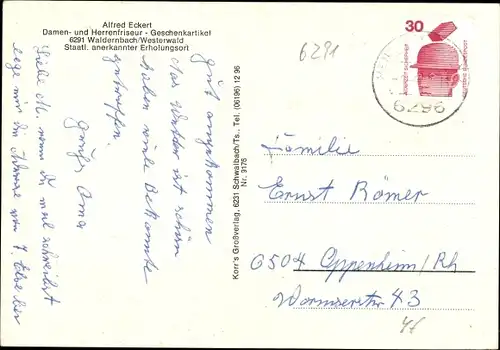 Alfred Eckert
Damen- und Herrenfriseur - Geschenkartikel
6291 Waldernbach/Westerwald
Staatl. anerkannter Erholungsort
6291
30
6296
gut angekommen
das Wetter ist schön
haben viele Bekannte
getroffen.
Gruß Oma
Liebe M. wenn Du mal schreibst
lege mir die
Korr's Großverlag, 6231 Schwalbach/Ts., Tel. (06196) 12 96
Nr. 9176
Familie
Ernst Römer
6504 Oppenheim/Rh
Wormserstr 43